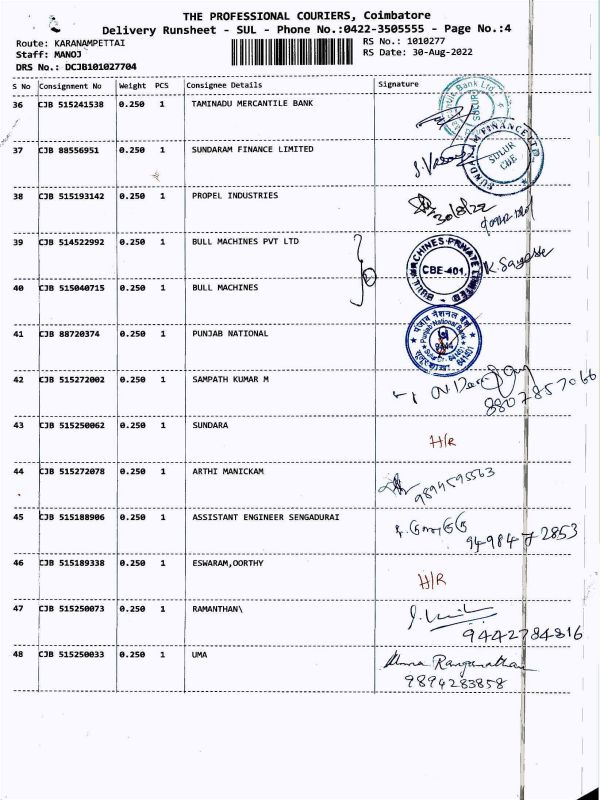 THE PROFESSIONAL COURIERS, Coimbatore
Delivery Runsheet - SUL - Phone No.:0422-3505555 - Page No.:4
Route: KARANAMPETTAI RS No.: 1010277
Staff: MANOJ RS Date: 30-Aug-2022
DRS No.: DCJB101027704
S No Consignment No Weight PCS Consignee Details Signature
36 CJB 515241538 0.250 1 TAMINADU MERCANTILE BANK
37 CJB 88556951 0.250 1 SUNDARAM FINANCE LIMITED
SUNDARAM FINANCE LTD
SULUR
CBE
38 CJB 515193142 0.250 1 PROPEL INDUSTRIES 30/8/22
39 CJB 514522992 0.250 1 BULL MACHINES PVT LTD
BULL MACHINES PRIVATE LIMITED
CBE-401.
40 CJB 515040715 0.250 1 BULL MACHINES
41 CJB 88720374 0.250 1 PUNJAB NATIONAL
पंजाब नैशनल बैंक
Punjab National Bank
42 CJB 515272002 0.250 1 SAMPATH KUMAR M
8807857066
43 CJB 515250062 0.250 1 SUNDARA H/R
44 CJB 515272078 0.250 1 ARTHI MANICKAM 9894595563
45 CJB 515188906 0.250 1 ASSISTANT ENGINEER SENGADURAI
9498472853
46 CJB 515189338 0.250 1 ESWARAM,OORTHY H/R
47 CJB 515250073 0.250 1 RAMANTHAN\
9442784816
48 CJB 515250033 0.250 1 UMA Uma Ranganathan
9894283858